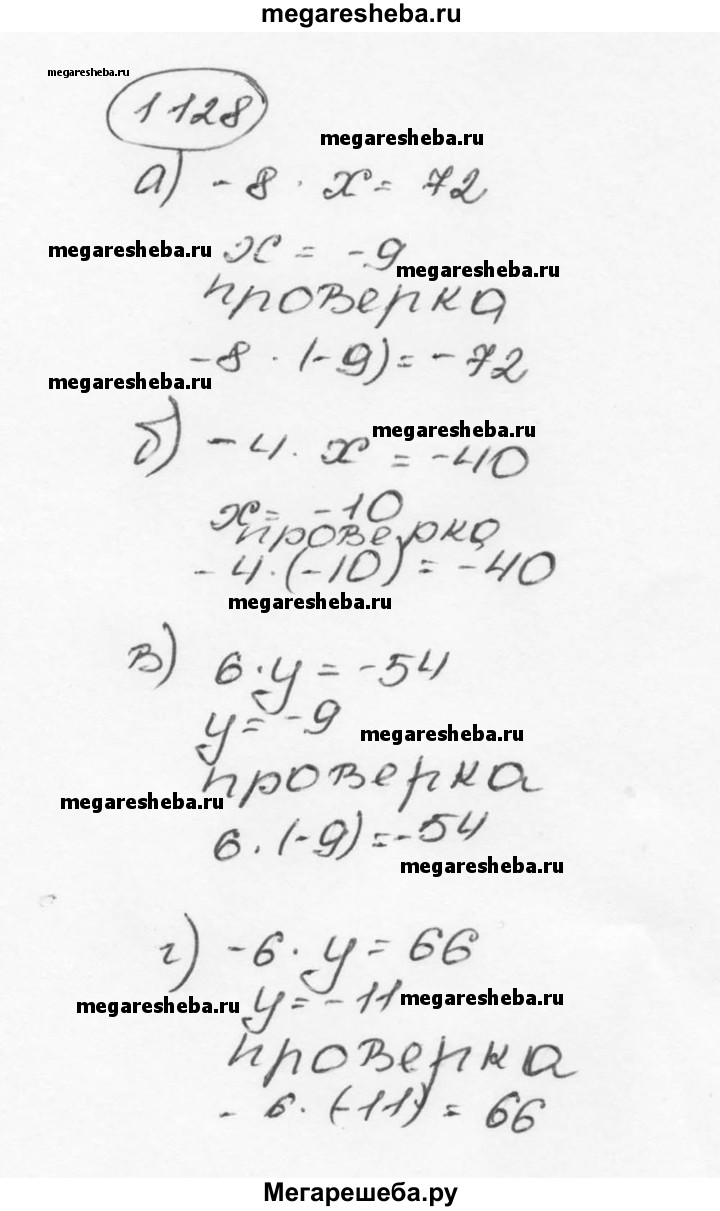 megaresheba.ru
megaresheba.ru
1128
megaresheba.ru
а) -8 · x = 72
megaresheba.ru
x = -9
megaresheba.ru
проверка
-8 · (-9) = -72
megaresheba.ru
megaresheba.ru
б) -4 · x = -40
x = -10
проверка
-4 · (-10) = -40
megaresheba.ru
в) 6 · y = -54
y = -9
megaresheba.ru
проверка
megaresheba.ru
6 · (-9) = -54
megaresheba.ru
г) -6 · y = 66
megaresheba.ru
y = -11
megaresheba.ru
проверка
-6 · (-11) = 66
Мегарешеба.ру